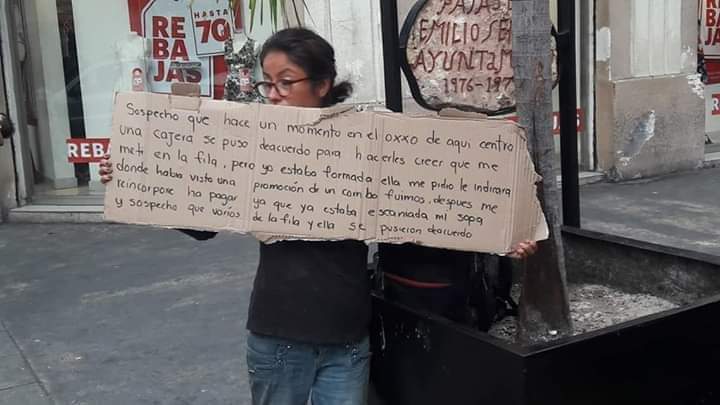 REBAJAS
HASTA
70
PASAJE
EMILIO SE
AYUNTAM
1976-197
REBA
Sospecho que hace un momento en el oxxo de aqui centro
una cajera se puso deacuerdo para hacerles creer que me
meti en la fila, pero yo estaba formada ella me pidio le indicara
donde había visto una promoción de un combo fuimos, despues me
reincorpore ha pagar ya que ya estaba escaniada mi sopa
y sospecho que varios de la fila y ella se pusieron deacuerdo